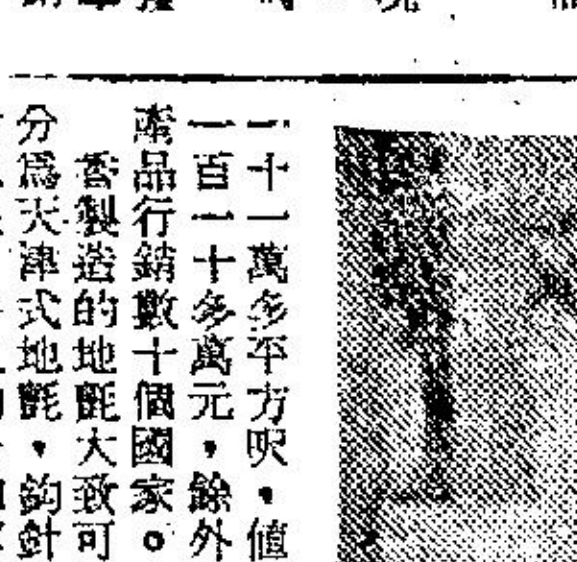 一十一萬多平方呎，值
一百一十多萬元，餘外
產品行銷數十個國家。
香製造的地氈大致可
分爲天津式地氈，鈎針